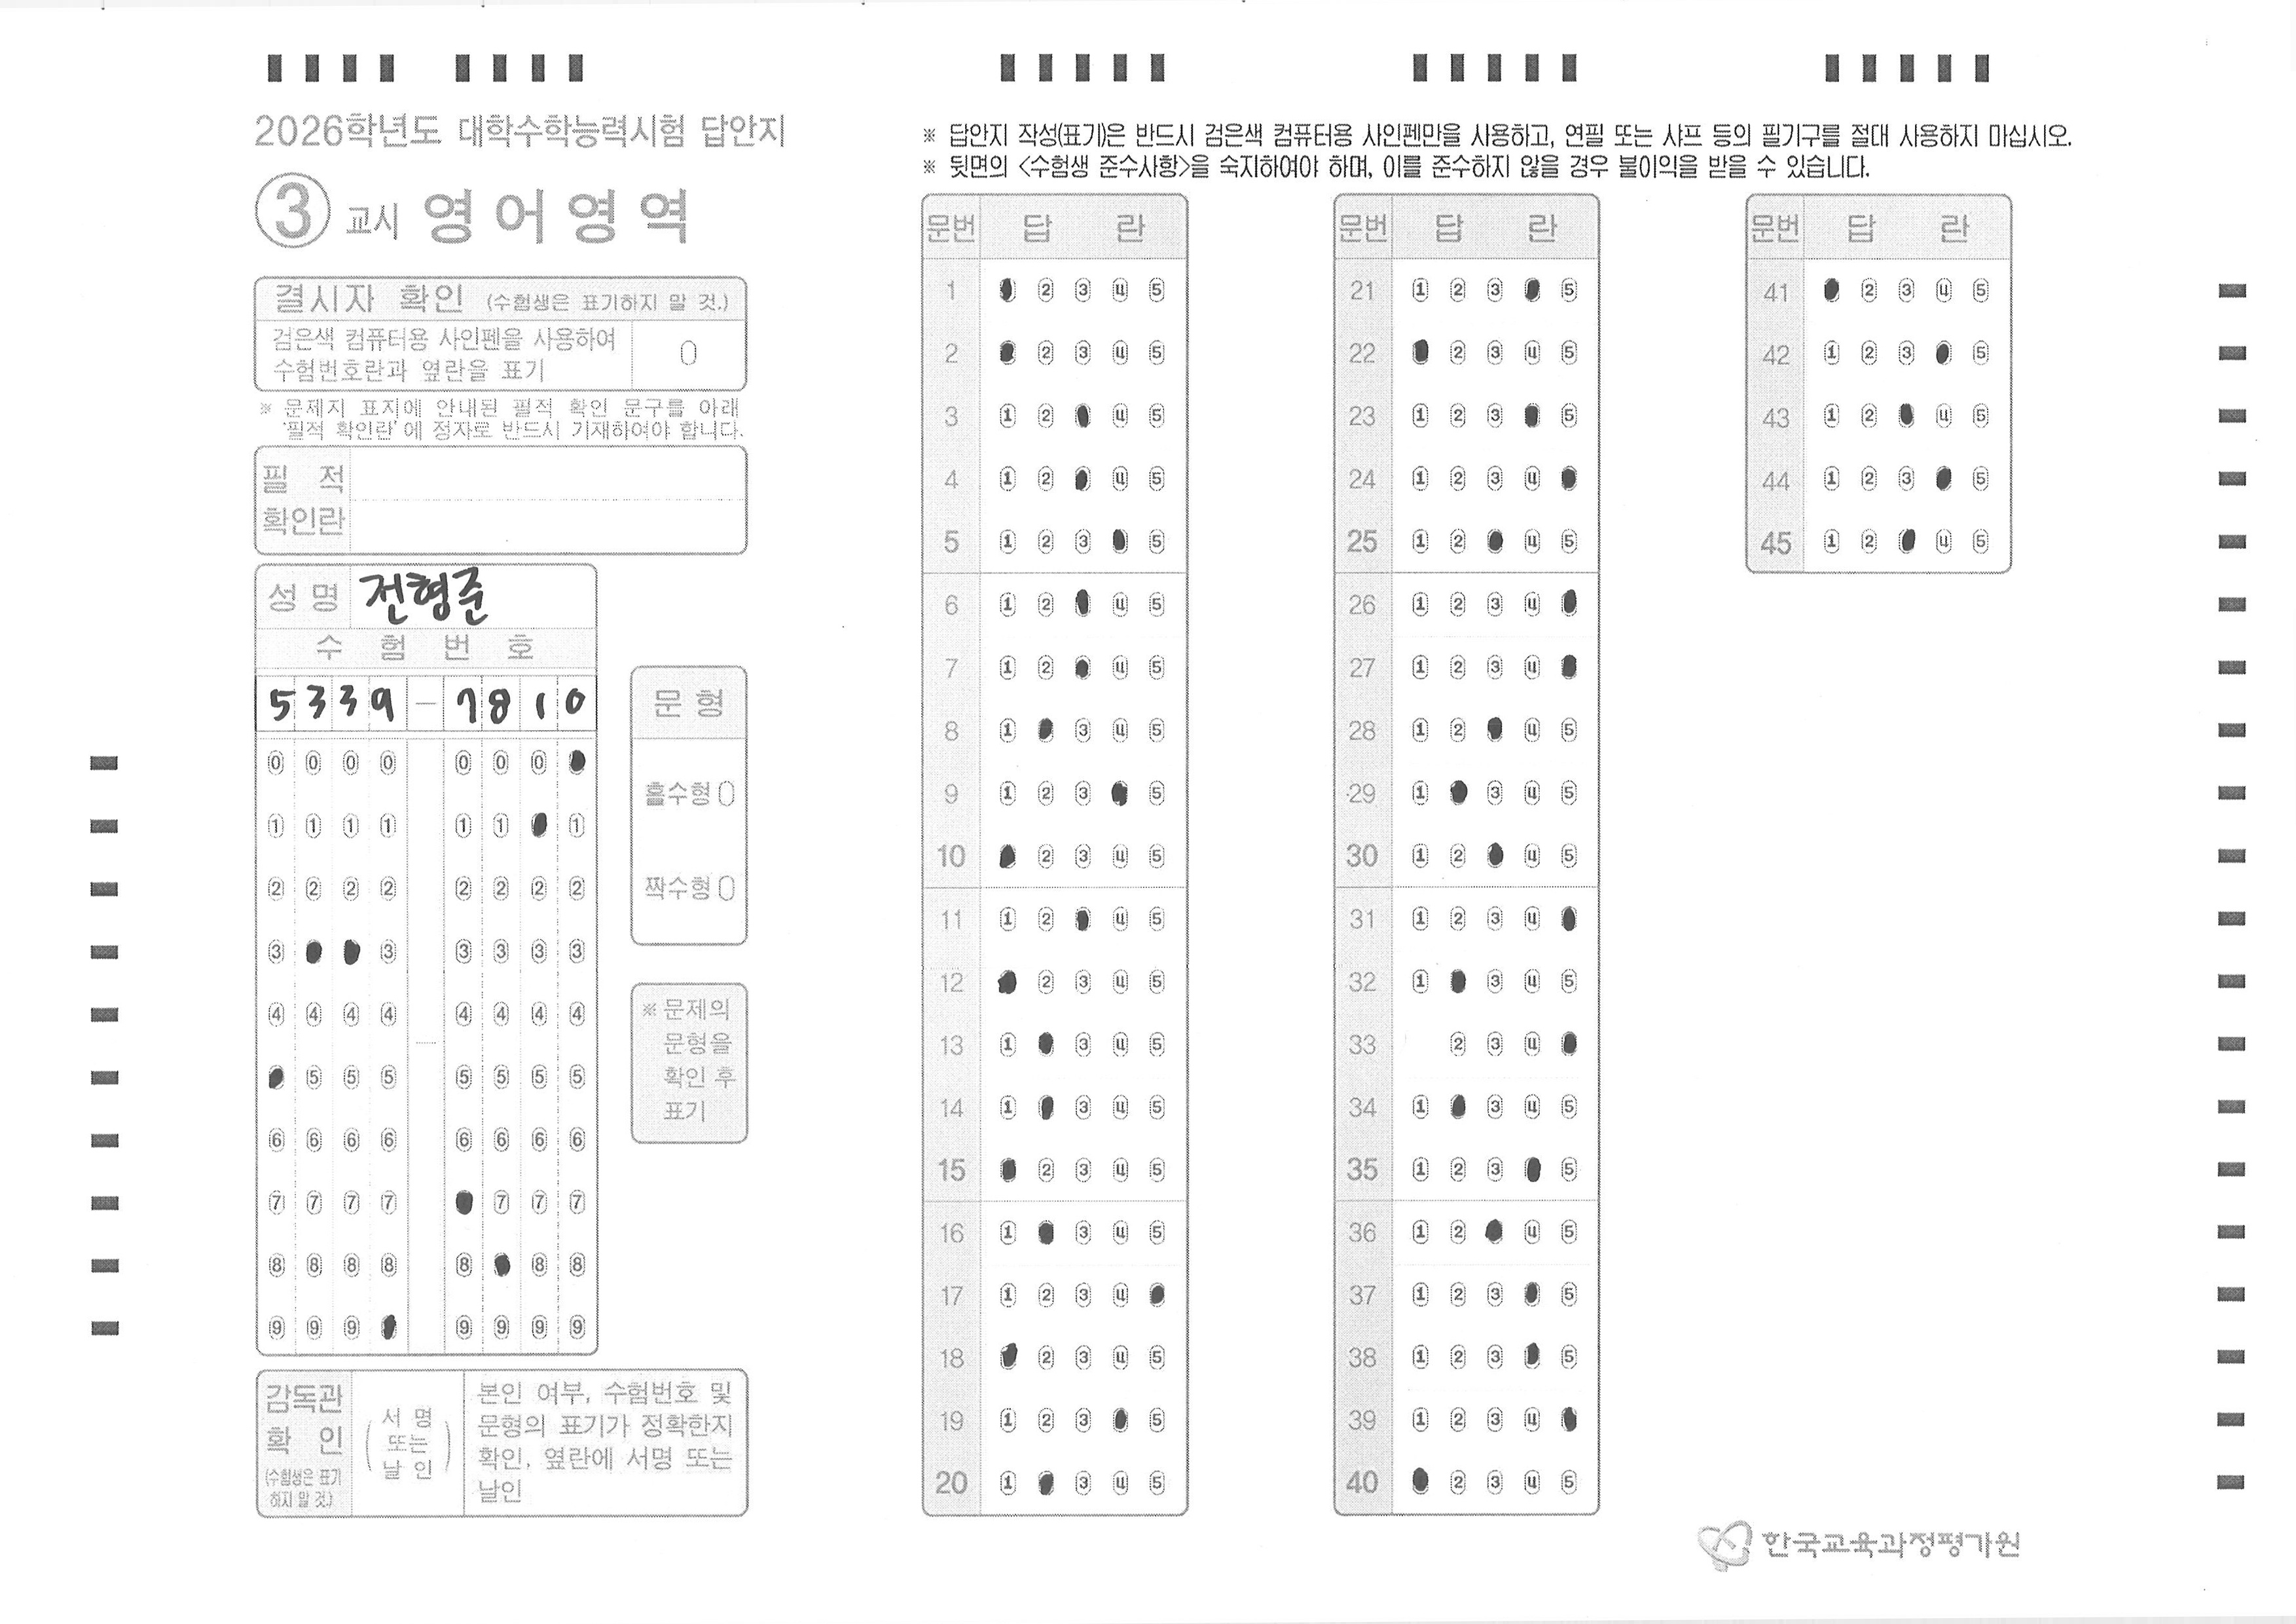 2026학년도 대학수학능력시험 답안지
③ 교시 영어영역
결시자 확인 (수험생은 표기하지 말 것.)
검은색 컴퓨터용 사인펜을 사용하여
수험번호란과 옆란을 표기
0
※ 문제지 표지에 안내된 필적 확인 문구를 아래
'필적 확인란'에 정자로 반드시 기재하여야 합니다.
필 적
확인란
성 명 전형준
수 험 번 호
5 3 3 9 - 7 8 1 0
0 0 0 0 0 0 0
1 1 1 1 1 1 1
2 2 2 2 2 2 2 2
3 3 3 3 3 3
4 4 4 4 4 4 4 4
5 5 5 5 5 5 5
6 6 6 6 6 6 6 6
7 7 7 7 7 7 7
8 8 8 8 8 8 8
9 9 9 9 9 9 9
문 형
홀수형 0
짝수형 0
※ 문제의
문형을
확인 후
표기
감독관
확 인
(수험생은 표기
하지 말 것.)
서 명
또는
날 인
본인 여부, 수험번호 및
문형의 표기가 정확한지
확인, 옆란에 서명 또는
날인
※ 답안지 작성(표기)은 반드시 검은색 컴퓨터용 사인펜만을 사용하고, 연필 또는 샤프 등의 필기구를 절대 사용하지 마십시오.
※ 뒷면의 <수험생 준수사항>을 숙지하여야 하며, 이를 준수하지 않을 경우 불이익을 받을 수 있습니다.
문번 답 란
1 2 3 4 5
2 2 3 4 5
3 1 2 4 5
4 1 2 4 5
5 1 2 3 5
6 1 2 4 5
7 1 2 4 5
8 1 3 4 5
9 1 2 3 5
10 2 3 4 5
11 1 2 4 5
12 2 3 4 5
13 1 3 4 5
14 1 3 4 5
15 2 3 4 5
16 1 3 4 5
17 1 2 3 4
18 2 3 4 5
19 1 2 3 5
20 1 3 4 5
문번 답 란
21 1 2 3 5
22 2 3 4 5
23 1 2 3 5
24 1 2 3 4
25 1 2 4 5
26 1 2 3 4
27 1 2 3 4
28 1 2 4 5
29 1 3 4 5
30 1 2 4 5
31 1 2 3 4
32 1 3 4 5
33 2 3 4
34 1 3 4 5
35 1 2 3 5
36 1 2 4 5
37 1 2 3 5
38 1 2 3 5
39 1 2 3 4
40 2 3 4 5
문번 답 란
41 2 3 4 5
42 1 2 3 5
43 1 2 4 5
44 1 2 3 5
45 1 2 4 5
한국교육과정평가원